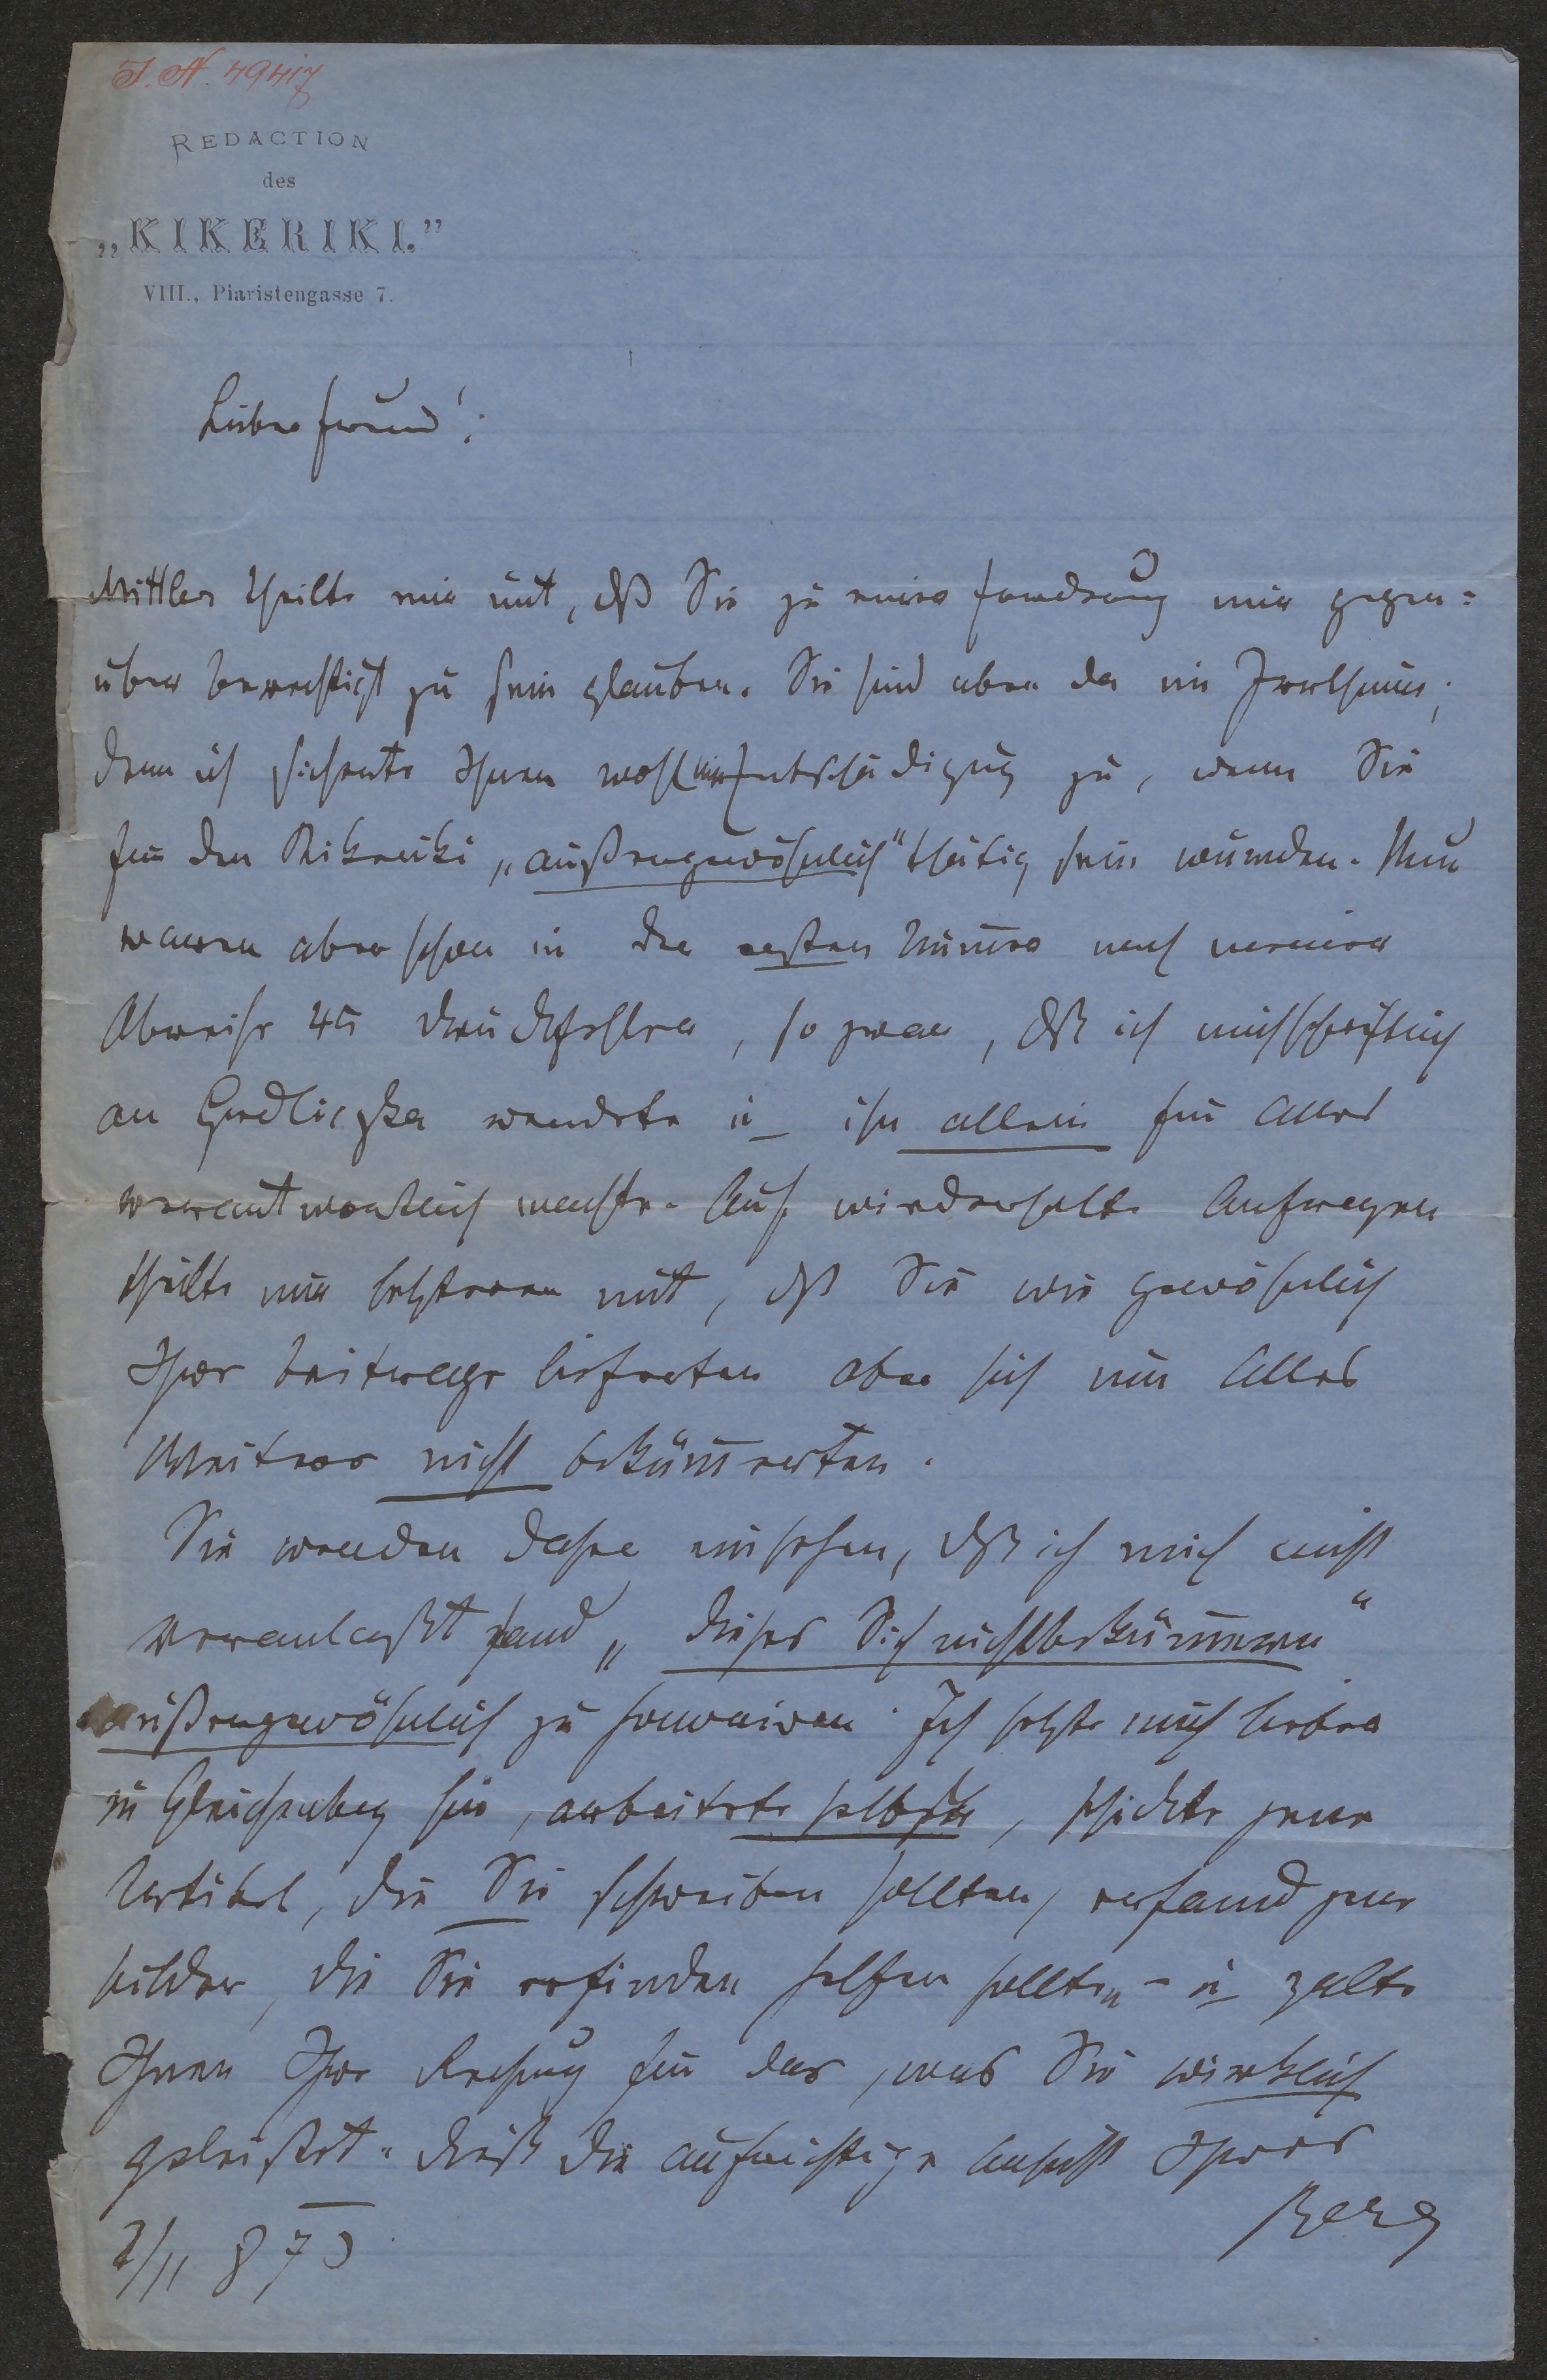 I. N. 49417
REDACTION
des
„KIKERIKI.”
VIII., Piaristengasse 7.
Lieber Freund!
Mittler theilte mir mit, dß Sie zu einer Forderung mir gegen=
über berechtigt zu sein glauben. Sie sind aber da im Irrthum,
denn ich sicherte Ihnen wohl eine Entschädigung zu, wenn Sie
für den Kikeriki „außergewöhnlich“ thätig sein würden. Nun
waren aber schon in der ersten Numer nach meiner
Abreise 45 Druckfehler, so zwar, dß ich mich schriftlich
an Hrdliczka wendete u ihn allein für Alles
verantwortlich machte. Auf wiederholte Anfragen
theilte mir letzterer mit, dß Sie wie gewöhnlich
Ihre Beitraege lieferten aber sich um Alles
Weitere nicht bekümerten.
Sie werden daher einsehen, dß ich mich nicht
veranlaßt fand „dieses Sichnichtbekümern“
außergewöhnlich zu honoriren. Ich setzte mich lieber
in Gleichenberg hin, arbeitete selbst, schickte jene
Artikel, die Sie schreiben sollten, erfand jene
Bilder, die Sie erfinden helfen sollten – u zalte
Ihnen Ihre Rechnung für das, was Sie wirklich
geleistet. Dieß die aufrichtige Ansicht Ihres
Berg
2/11 873